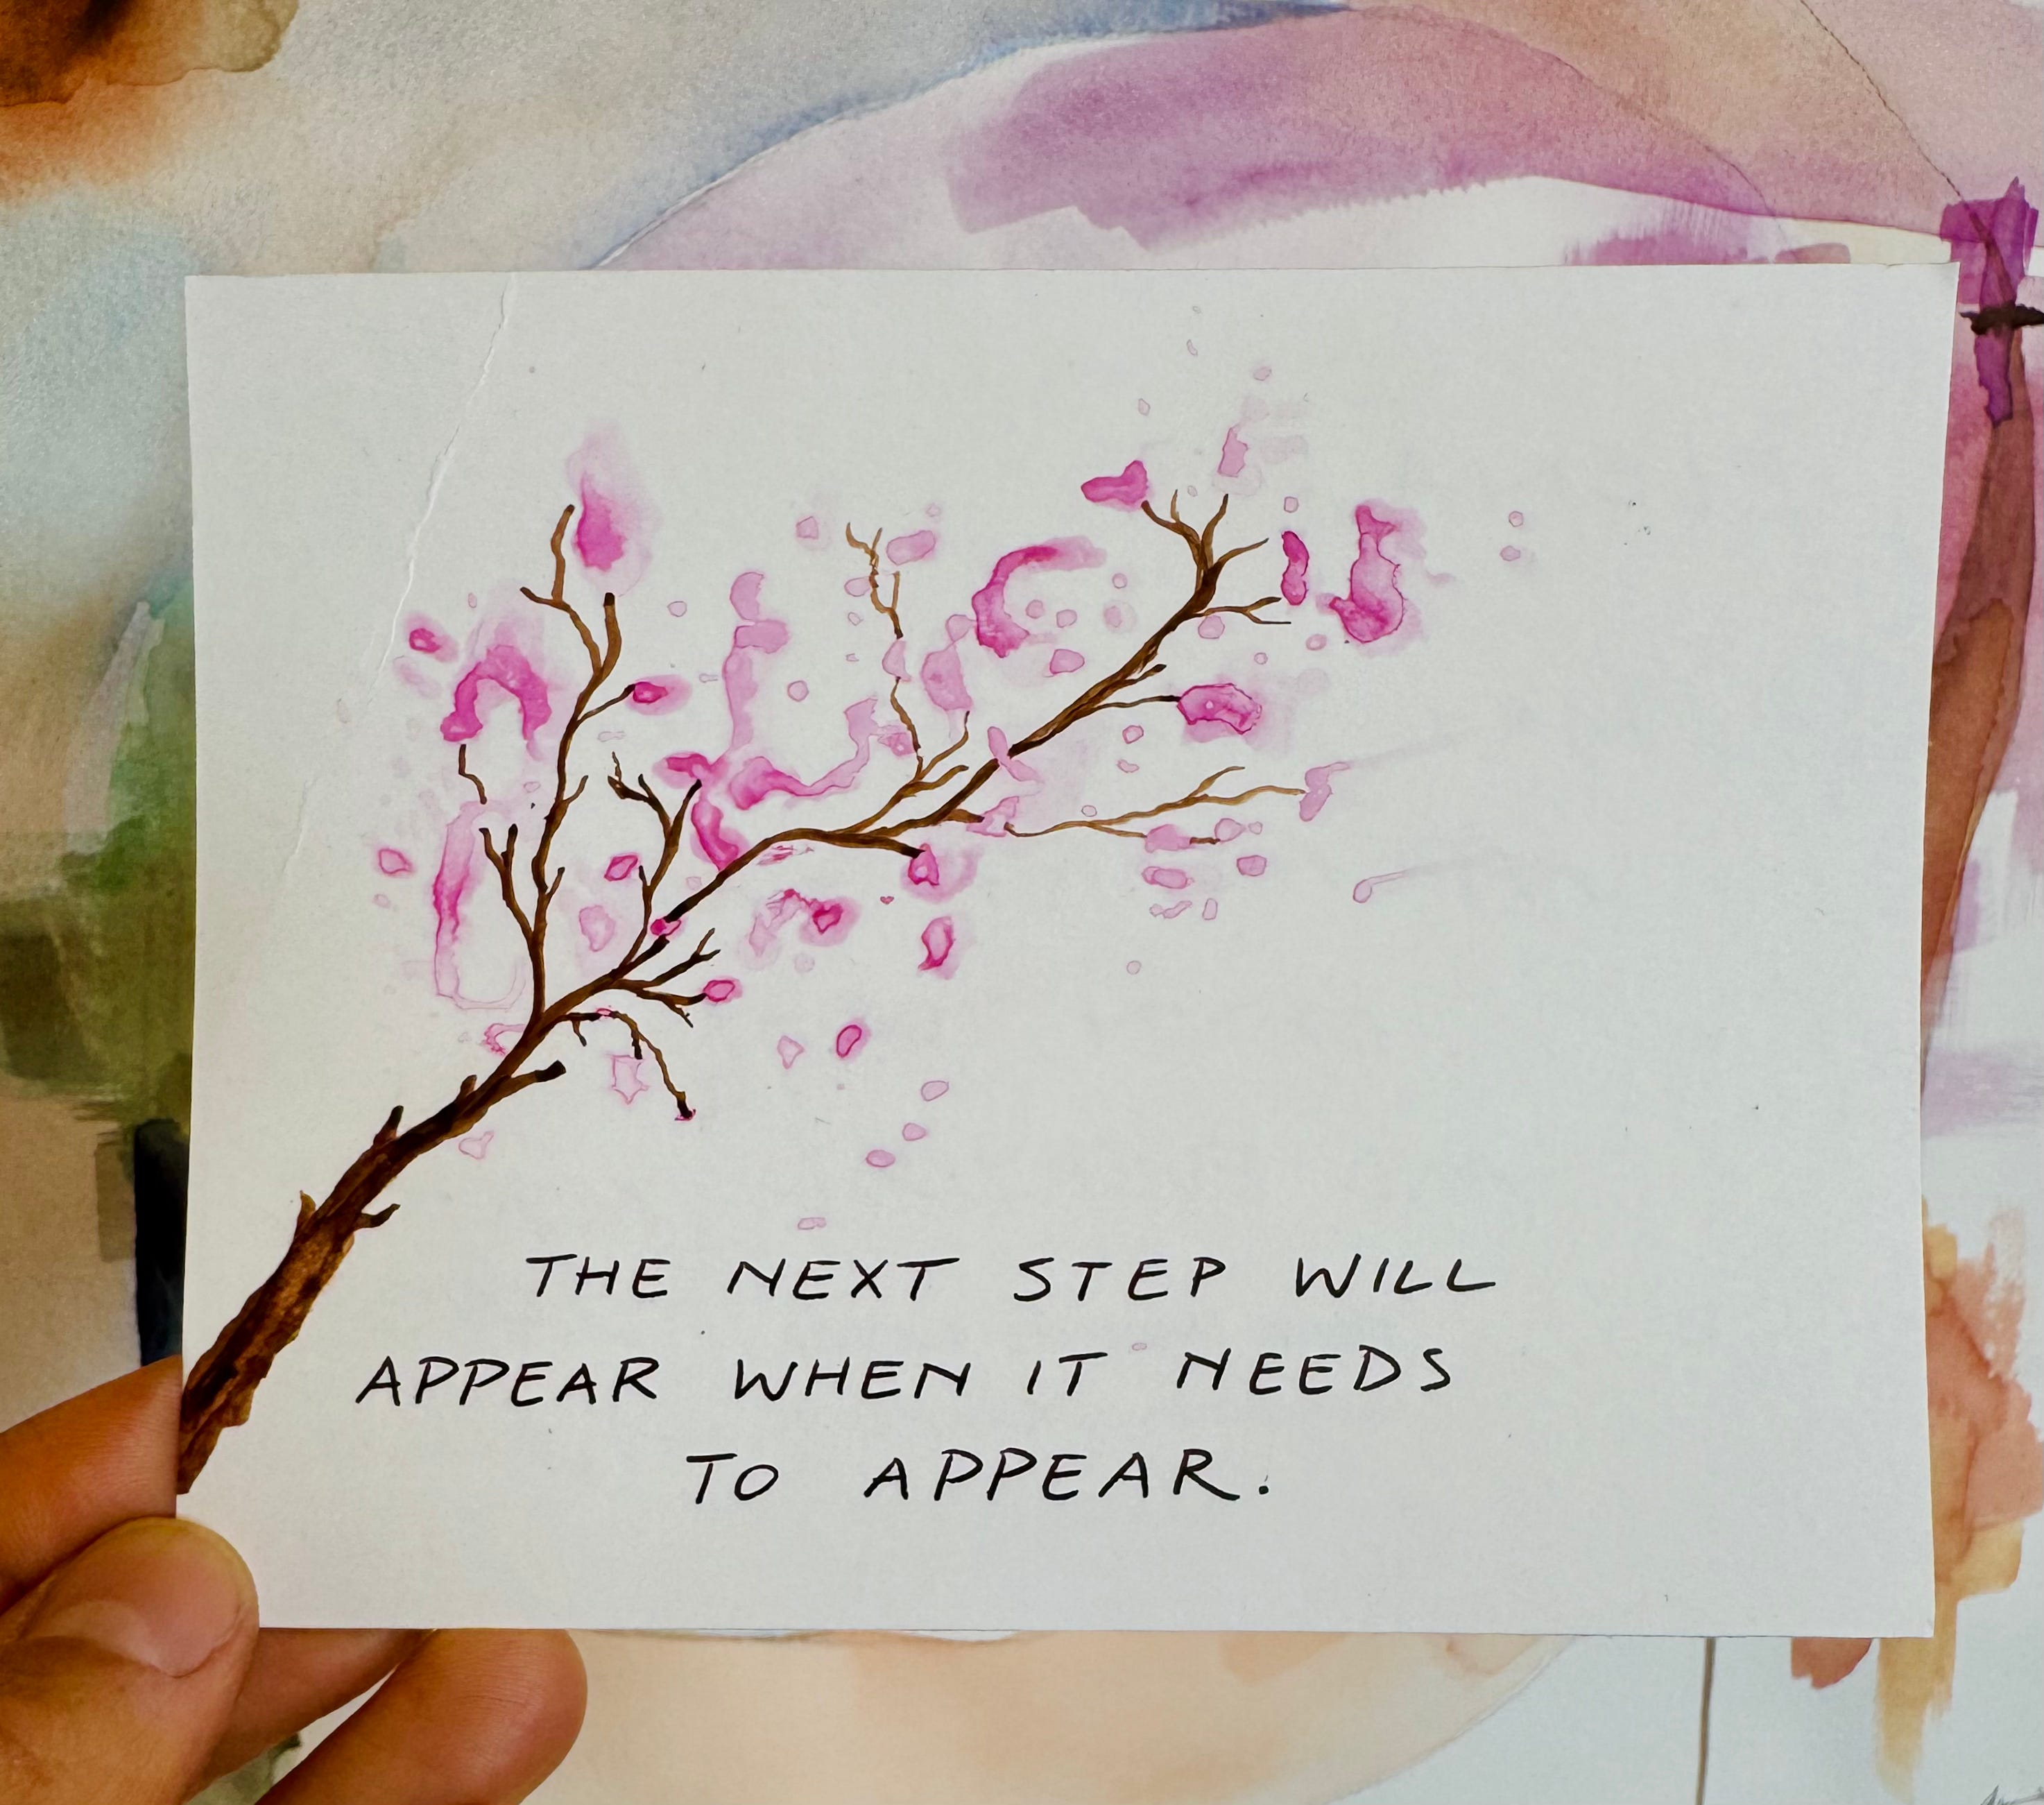 THE NEXT STEP WILL
APPEAR WHEN IT NEEDS
TO APPEAR.